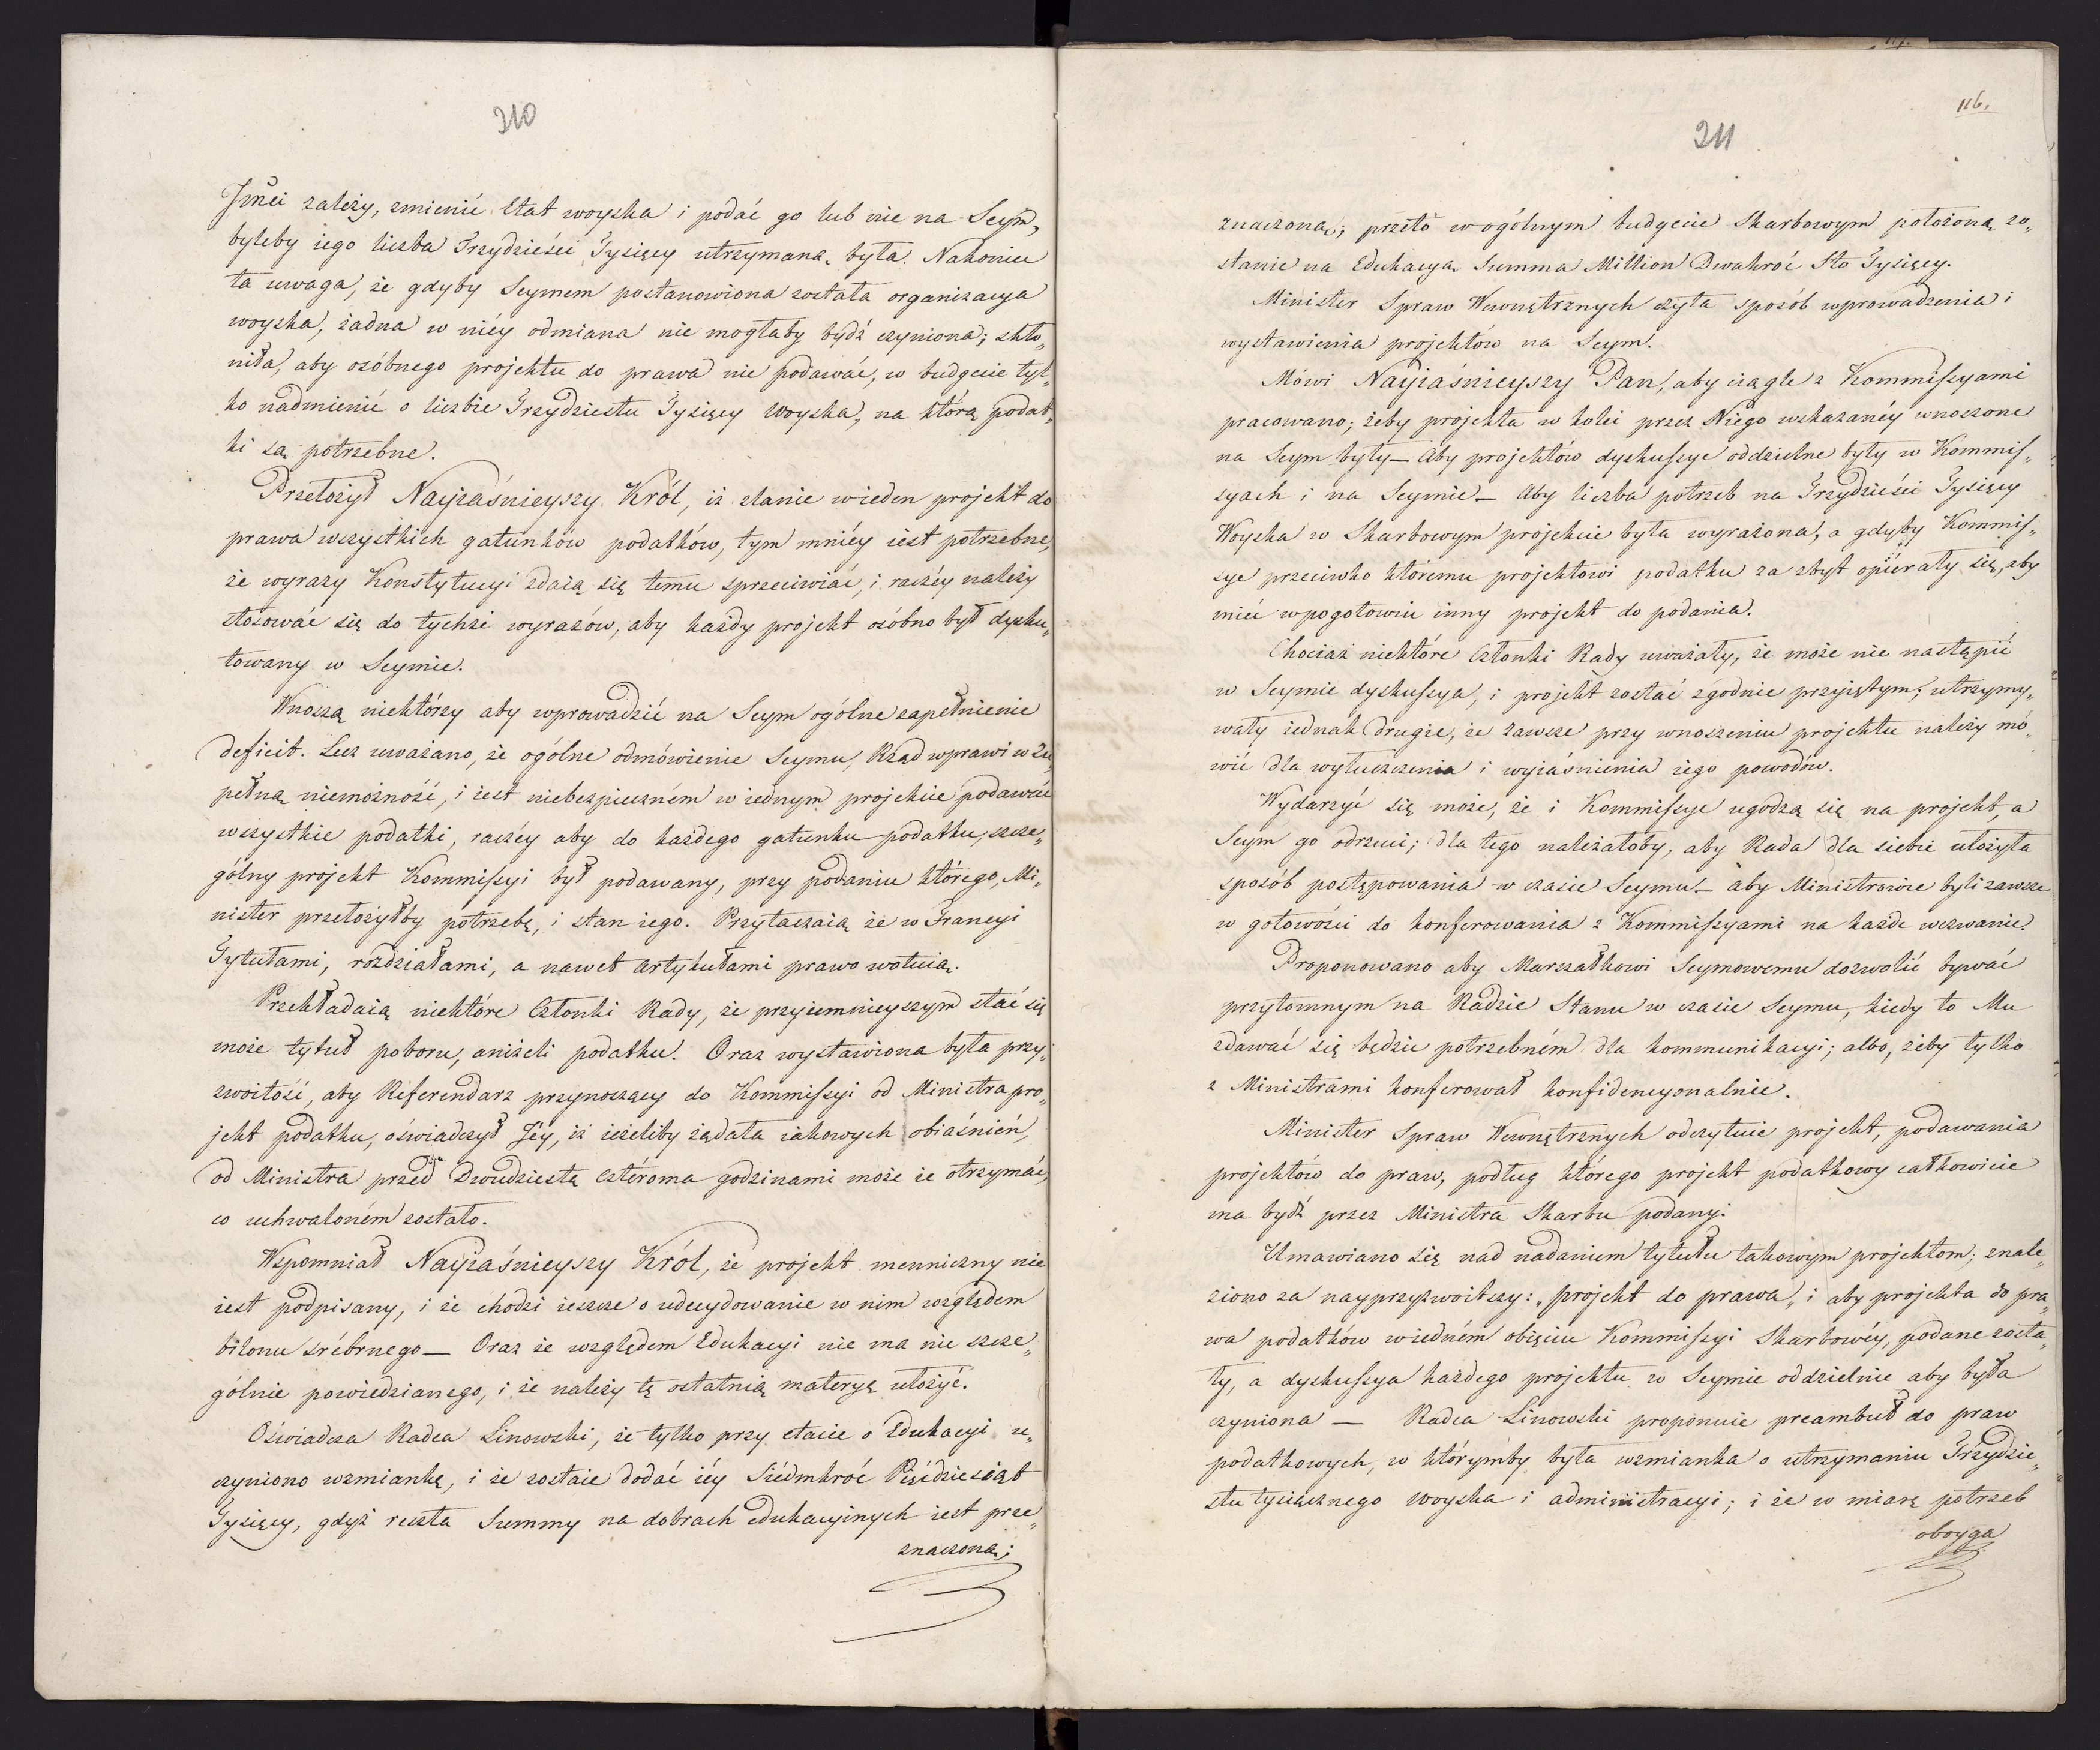 210
Jmći zależy, zmienić Etat woyska i podać go lub nie na Seym,
byleby iego liczba Trzydzieści Tysięcy utrzymaną była. Nakoniec
ta uwaga, że gdyby Seymem postanowiona została organizacya
woyska, żadna w niéy odmiana nie mogłaby bydź czyniona; skło„
niła, aby osóbnego projektu do prawa nie podawać, w budgecie tyl„
ko nadmienić o liczbie Trzydziestu Tysięcy Woyska, na którą podat„
ki są potrzebne.
Przełożył Nayiaśnieyszy Król, iż zlanie wieden projekt do
prawa wszystkich gatunków podatków, tym mniéy iest potrzebne,
że wyrazy Konstytucyi zdaią się temu sprzeciwiać, i raczéy należy
stosować się do tychże wyrazów, aby każdy projekt osóbno był dysku„
towany w Seymie.
Wnoszą niektórzy aby wprowadzić na Seym ogólne zapełnienie
deficit. Lecz uważano, że ogólne odmówienie Seymu, Rząd wprawi w zu„
pełną niemożność, i iest niebezpieczném w iednym projekcie podawać
wszystkie podatki, raczéy aby do każdego gatunku podatku, szcze„
gólny projekt Kommissyi był podawany, przy podaniu którego, Mi„
nister przełożyłby potrzebę, i stan iego. Przytaczaią że w Francyi
Tytułami, rozdziałami, a nawet artykułami prawo wotuią.
Przekładaią niektóre Członki Rady, że przyiemnieyszym stać się
może tytuł poboru, aniżeli podatku. Oraz wystawiona była przy„
zwoitość, aby Referendarz przynoszący do Kommissyi od Ministra pro„
jekt podatku, oświadczył Jéy, iż ieżeliby żądała iakowych obiaśnień,
od Ministra przed Dwudziestą Cztéroma godzinami może ie otrzymać,
co uchwaloném zostało.
Wspomniał Nayiaśnieyszy Król, że projekt menniczny nie
iest podpisany, i że chodzi ieszcze o udecydowanie w nim względem
bilonu srébrnego — Oraz że względem Edukacyi nie ma nic szcze„
gólnie powiedzianego, i że należy tę ostatnią materyę ułożyć.
Oświadcza Radca Linowski, że tylko przy etacie o Edukacyi u„
czyniono wzmiankę, i że zostaie dodać iéy Siédmkroć Pięćdziesiąt
Tysięcy, gdyż reszta Summy na dobrach edukacyinych iest prze„
znaczoną;
116.
211
znaczoną; przeto w ogólnym budgecie Skarbowym położoną zo„
stanie na Edukacyą Summa Million Dwakroć Sto Tysięcy.
Minister Spraw Wewnętrznych czyta sposób wprowadzenia i
wystawienia projektów na Seym.
Mówi Nayiaśnieyszy Pan, aby ciągle z Kommissyami
pracowano; żeby projekta w kolei przez Niego wskazanéy wnoszone
na Seym były — Aby projektów dyskussye oddzielne były w Kommis„
syach i na Seymie — Aby liczba potrzeb na Trzydzieści Tysięcy
Woyska w Skarbowym projekcie była wyrażona, a gdyby Kommis„
sye przeciwko któremu projektowi podatku za zbyt opierały się, aby
mieć wpogotowiu inny projekt do podania.
Chociaż niektóre Członki Rady uważały, że może nie nastąpić
w Seymie dyskussya, i projekt zostać zgodnie przyiętym; utrzymy„
wały iednak drugie, że zawsze przy wnoszeniu projektu należy mó„
wić dla wytuszczenia i wyiaśnienia iego powodów.
Wydarzyć się może, że i Kommissye ugodzą się na projekt, a
Seym go odrzuci; dla tego należałoby, aby Rada dla siebie ułożyła
sposób postępowania w czasie Seymu — aby Ministrowie byli zawsze
w gotowości do konferowania z Kommissyami na każde wezwanie.
Proponowano aby Marszałkowi Seymowemu dozwolić bywać
przytomnym na Radzie Stanu w czasie Seymu, kiedy to Mu
zdawać się będzie potrzebném dla kommunikacyi; albo, żeby tylko
z Ministrami konferował konfidencyonalnie.
Minister Spraw Wewnętrznych odczytuie projekt, podawania
projektów do praw, podług którego projekt podatkowy całkowicie
ma bydź przez Ministra Skarbu podany.
Umawiano się nad nadaniem tytułu takowym projektom, znale„
ziono za nayprzyzwoitszy: „projekt do prawa„ i aby projekta do pra„
wa podatków wiedném obięciu Kommissyi Skarbowéy, podane zosta„
ły, a dyskussya każdego projektu w Seymie oddzielnie aby była
czyniona — Radca Linowski proponuie preambuł do praw
podatkowych, w którymby była wzmianka o utrzymaniu Trzydzie„
stu tysiącznego woyska i administracyi; i że w miarę potrzeb
oboyga